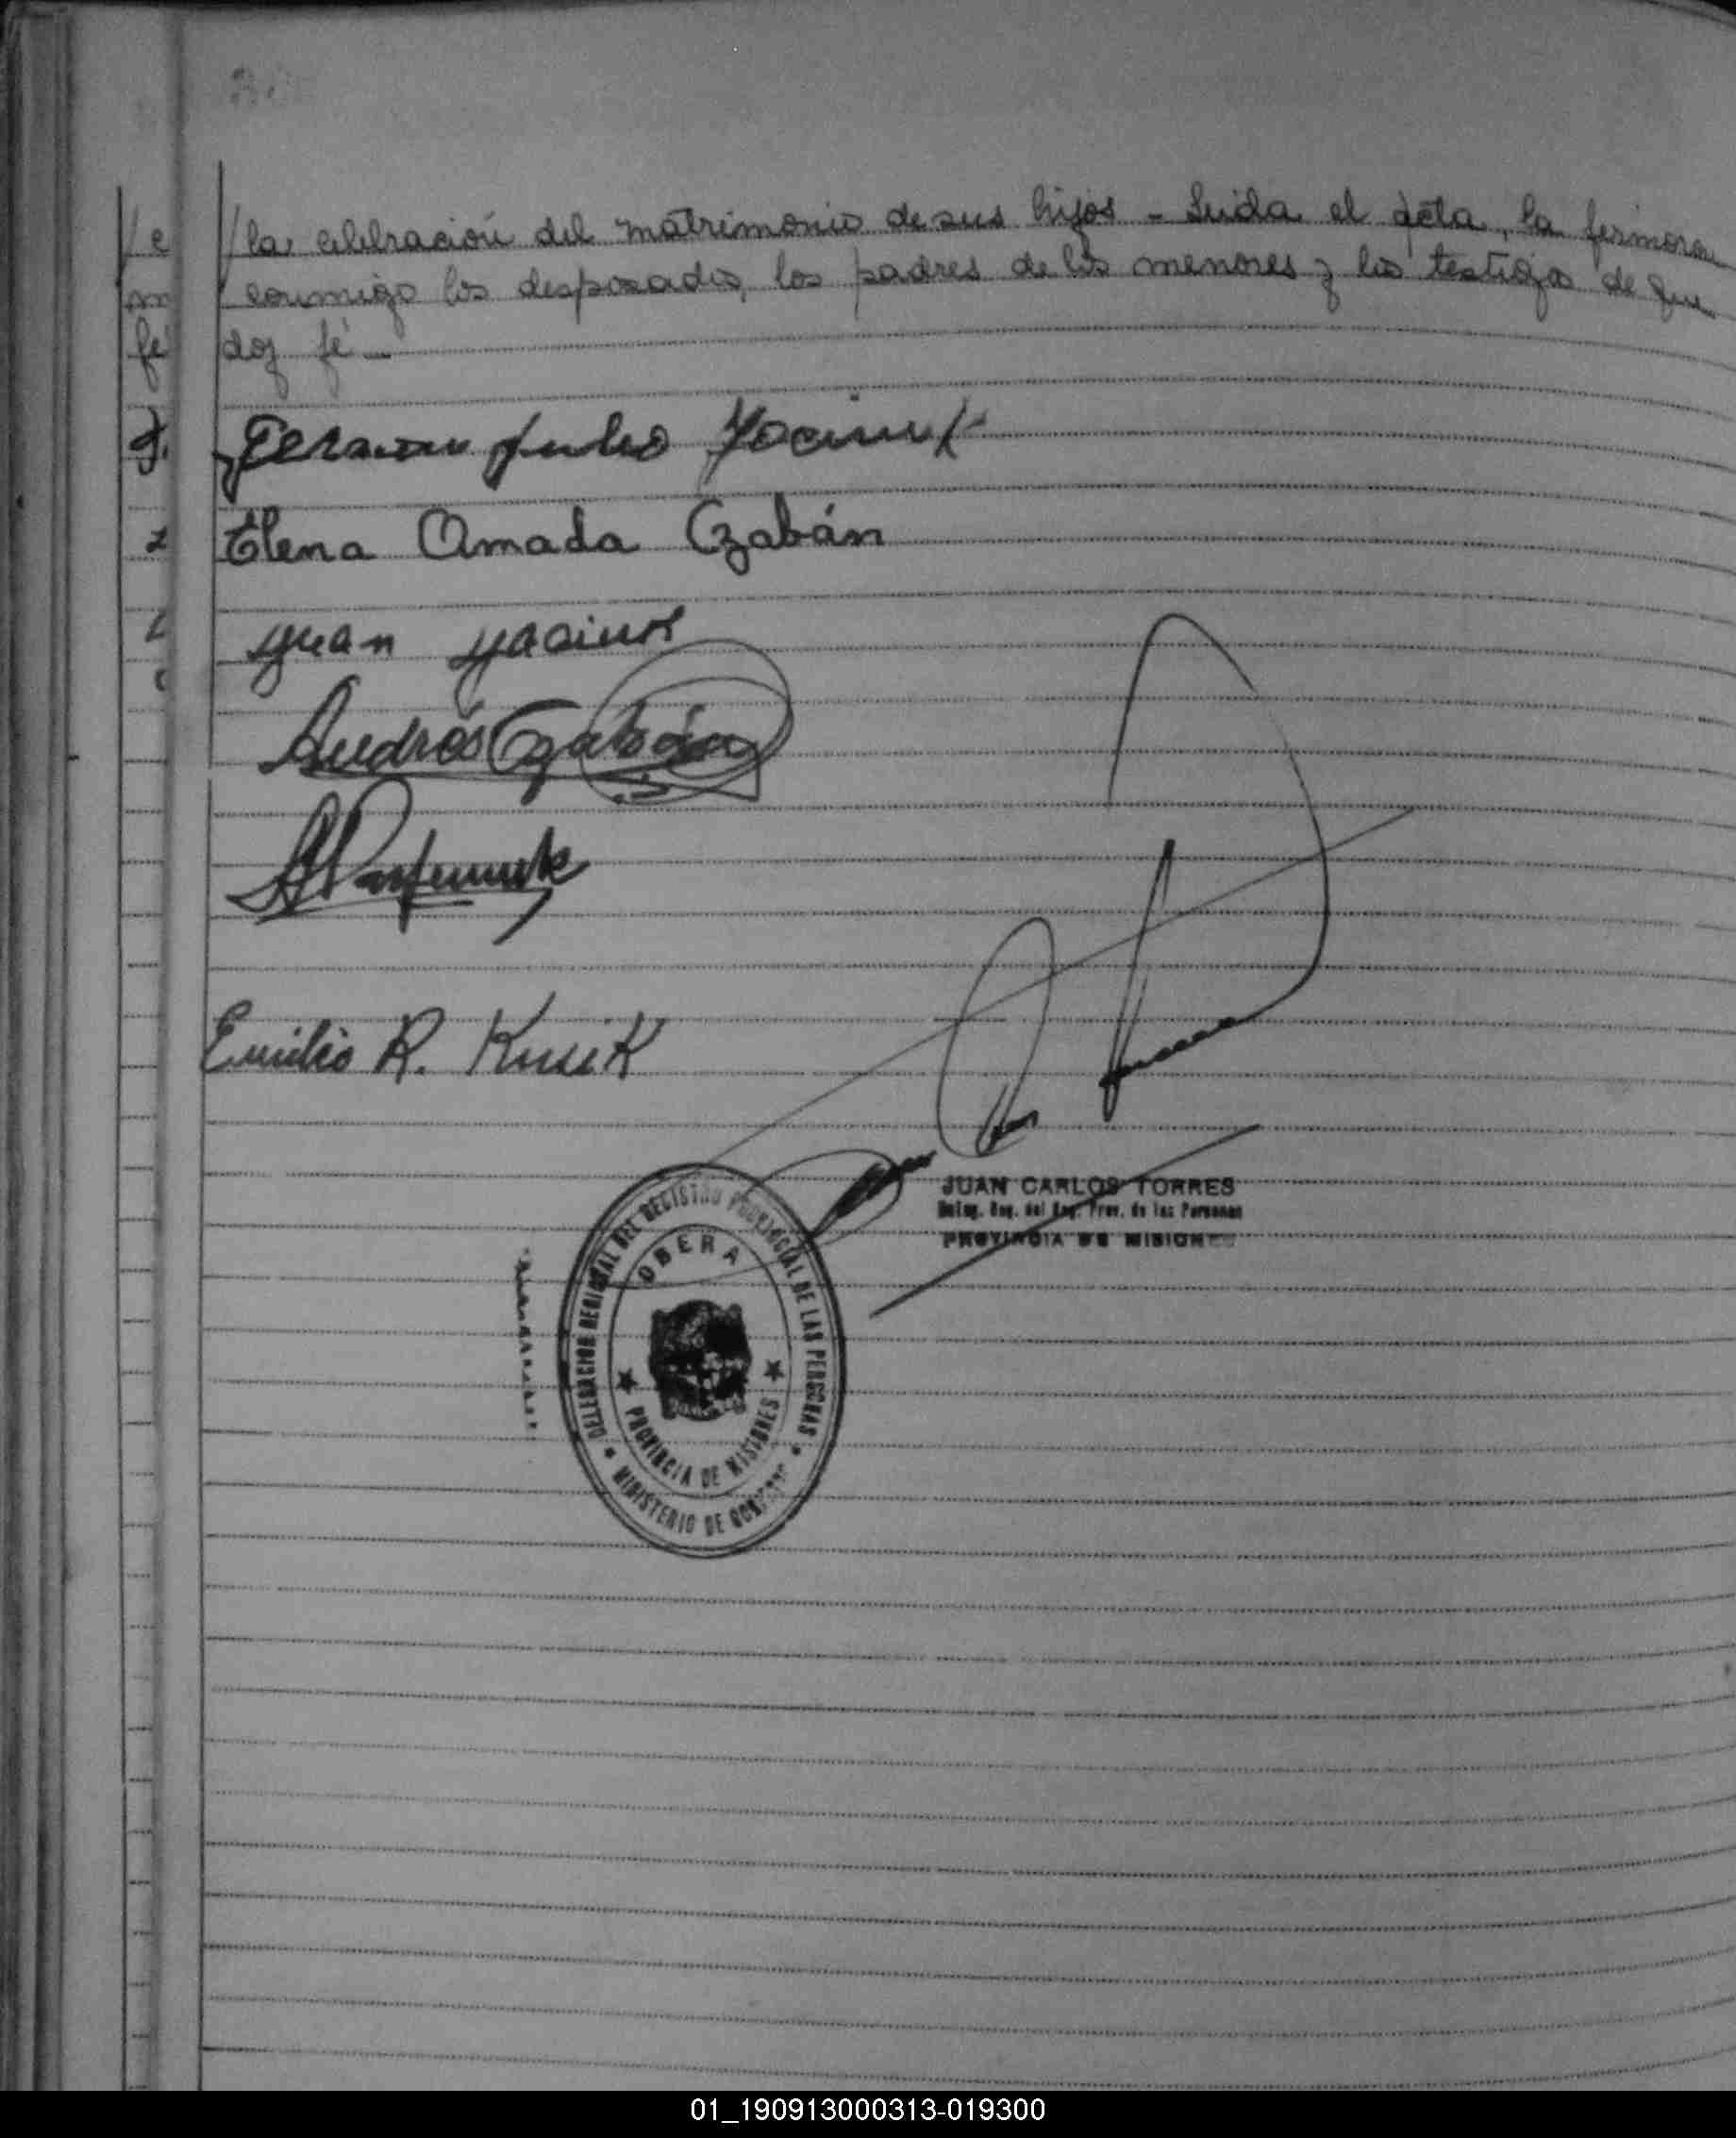 /la celebración del matrimonio de sus hijos - Leida el acta, la firmaron
conmigo los desposados, los padres de los menores y los testigos de que
doy fé
Julio
Elena Amada Czabán
Juan
Andrés Czabán
Emilio R.
JUAN CARLOS TORRES
Deleg. Reg. del Reg. Prov. de las Personas
PROVINCIA DE MISIONES
DELEGACION REGIONAL DEL REGISTRO PROVINCIAL DE LAS PERSONAS
OBERA
PROVINCIA DE MISIONES
MINISTERIO DE GOBIERNO
01_190913000313-019300